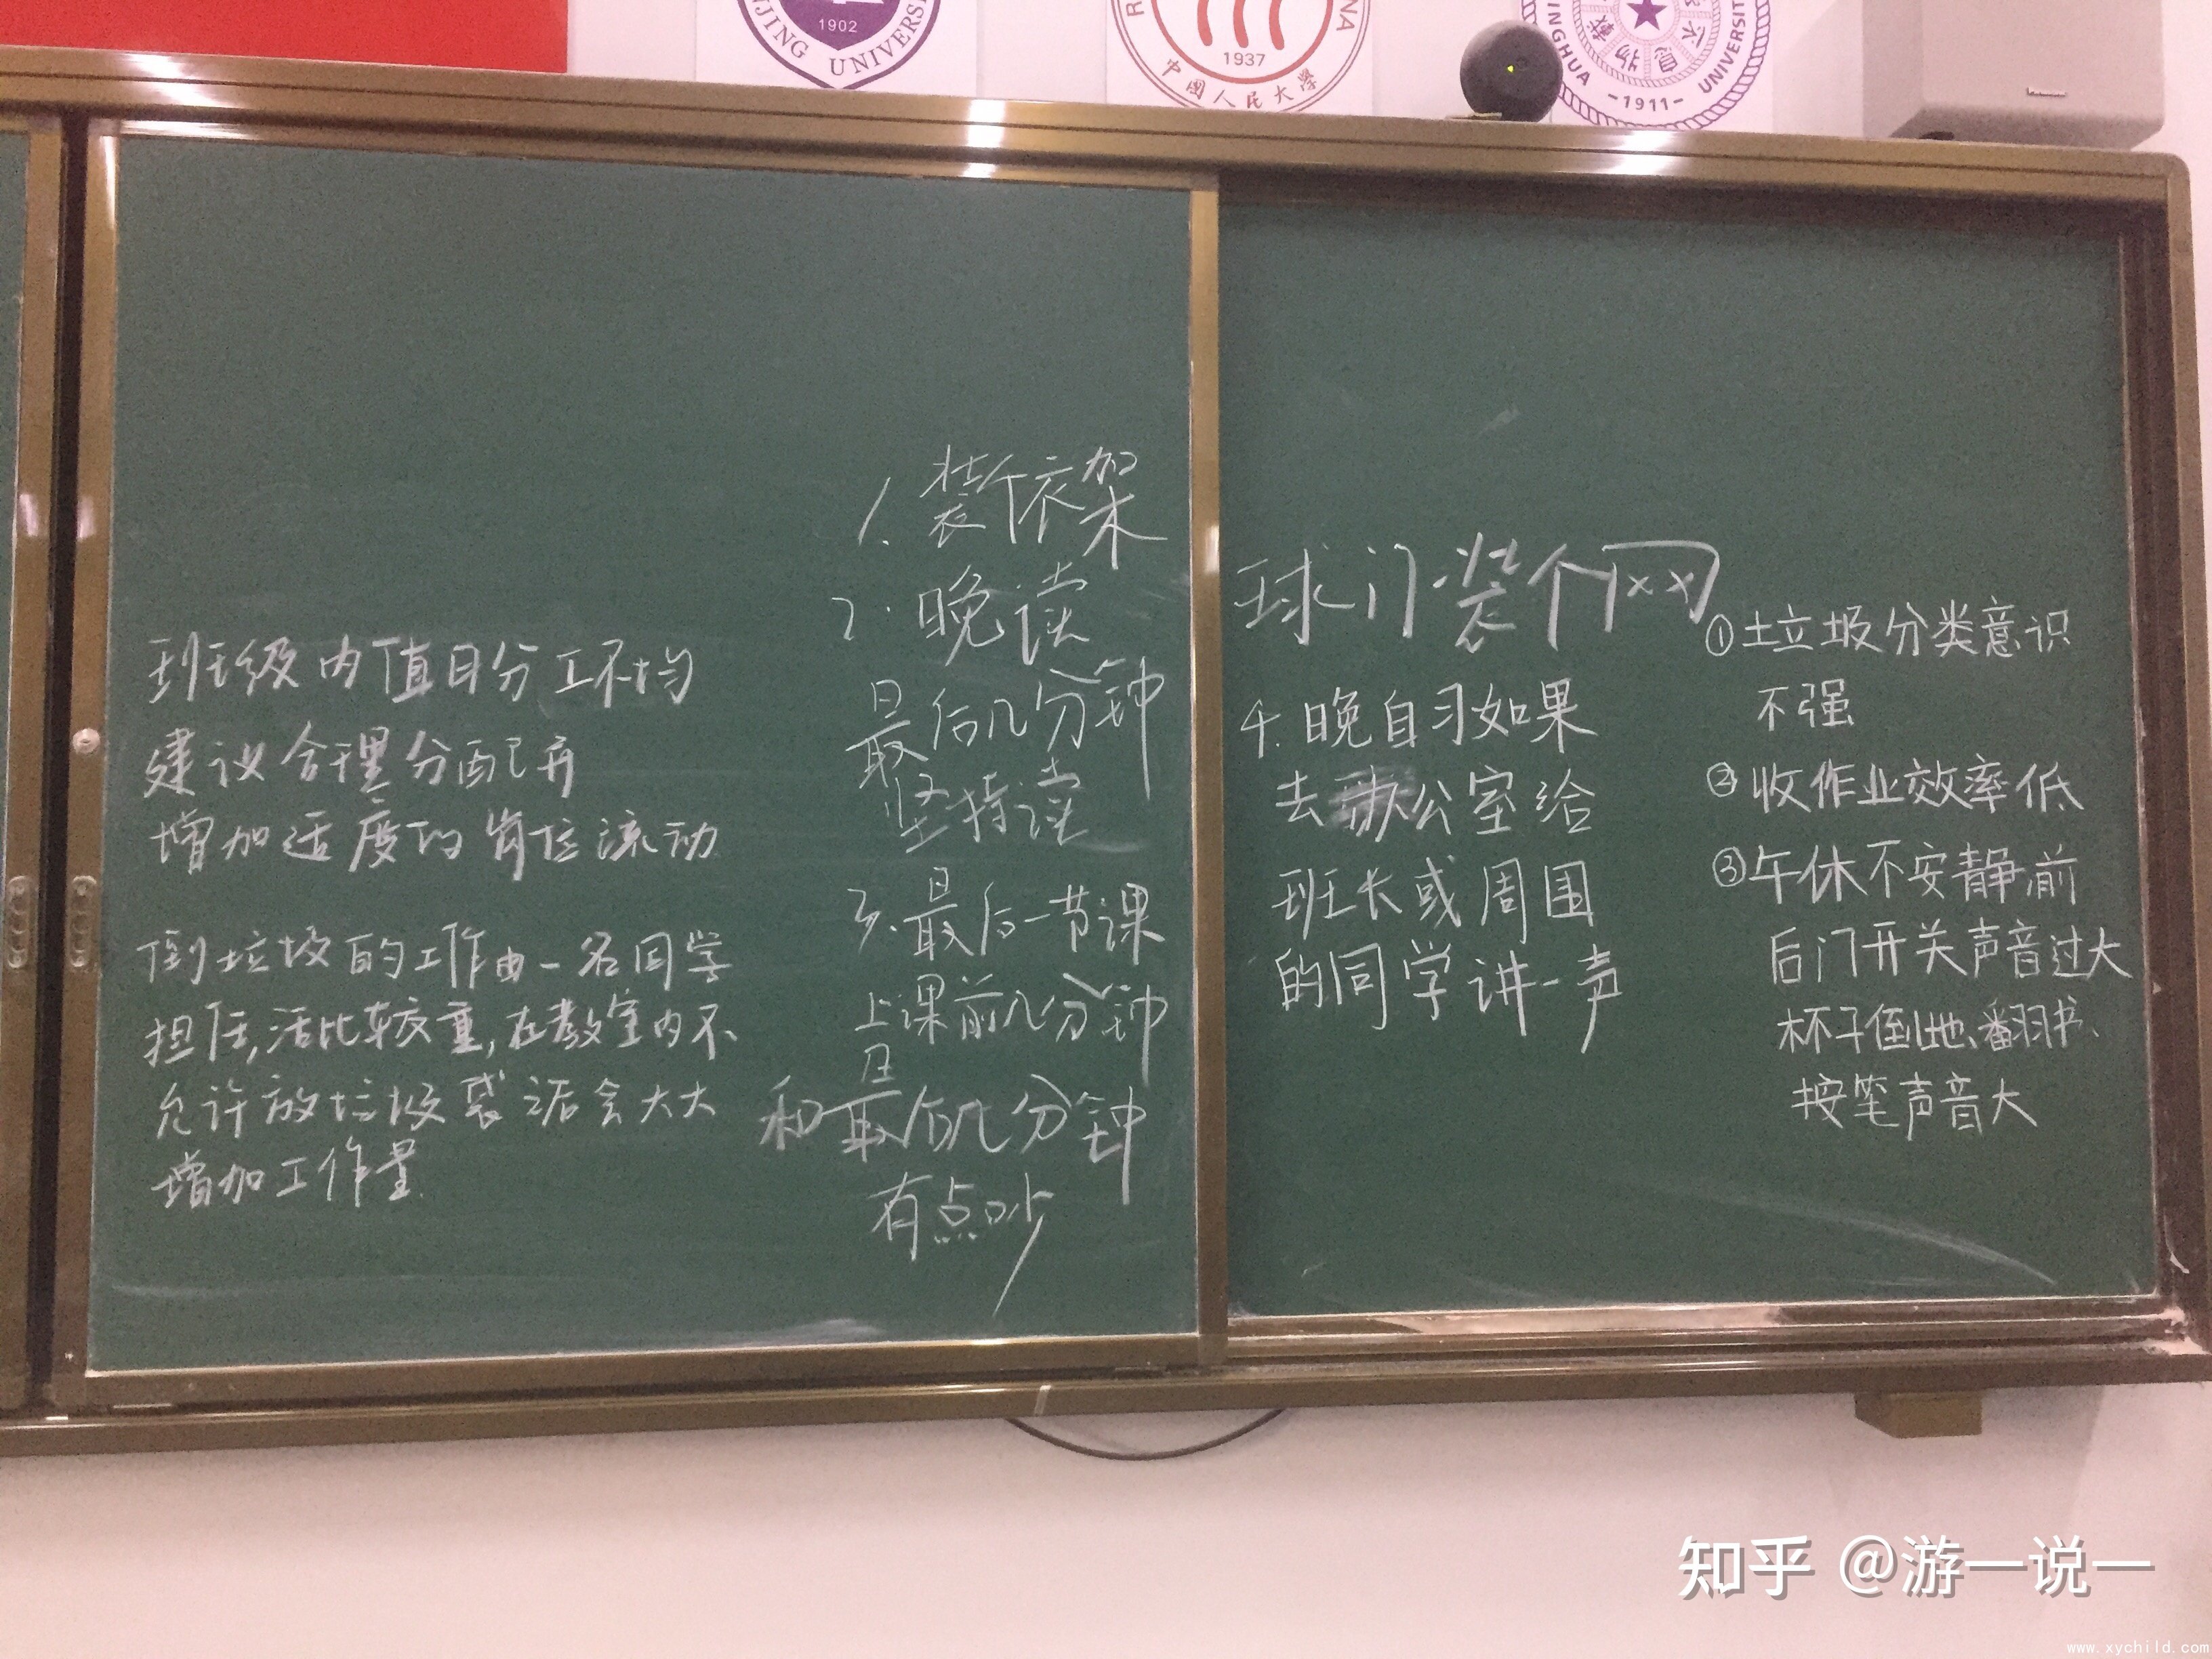 NJING UNIVERSITY
1902
1937
中国人民大学
NA
INGHUA UNIVERSIT
-1911-
Panasonic
班级内值日分工不均
建议合理分配并
增加适度的岗位流动
倒垃圾的工作由一名同学
担任,活比较重,在教室内不
允许放垃圾袋之后会大大
增加工作量.
1.装个衣架
2.晚读
最后几分钟
坚持读
3.最后一节课
上课前几分钟
和最后几分钟
有点吵
球门装个网
4.晚自习如果
去办公室给
班长或周围
的同学讲一声
①垃圾分类意识
不强
②收作业效率低
③午休不安静,前
后门开关声音过大
杯子倒地、翻书、
按笔声音大
知乎 @游一说一
www.xychild.com